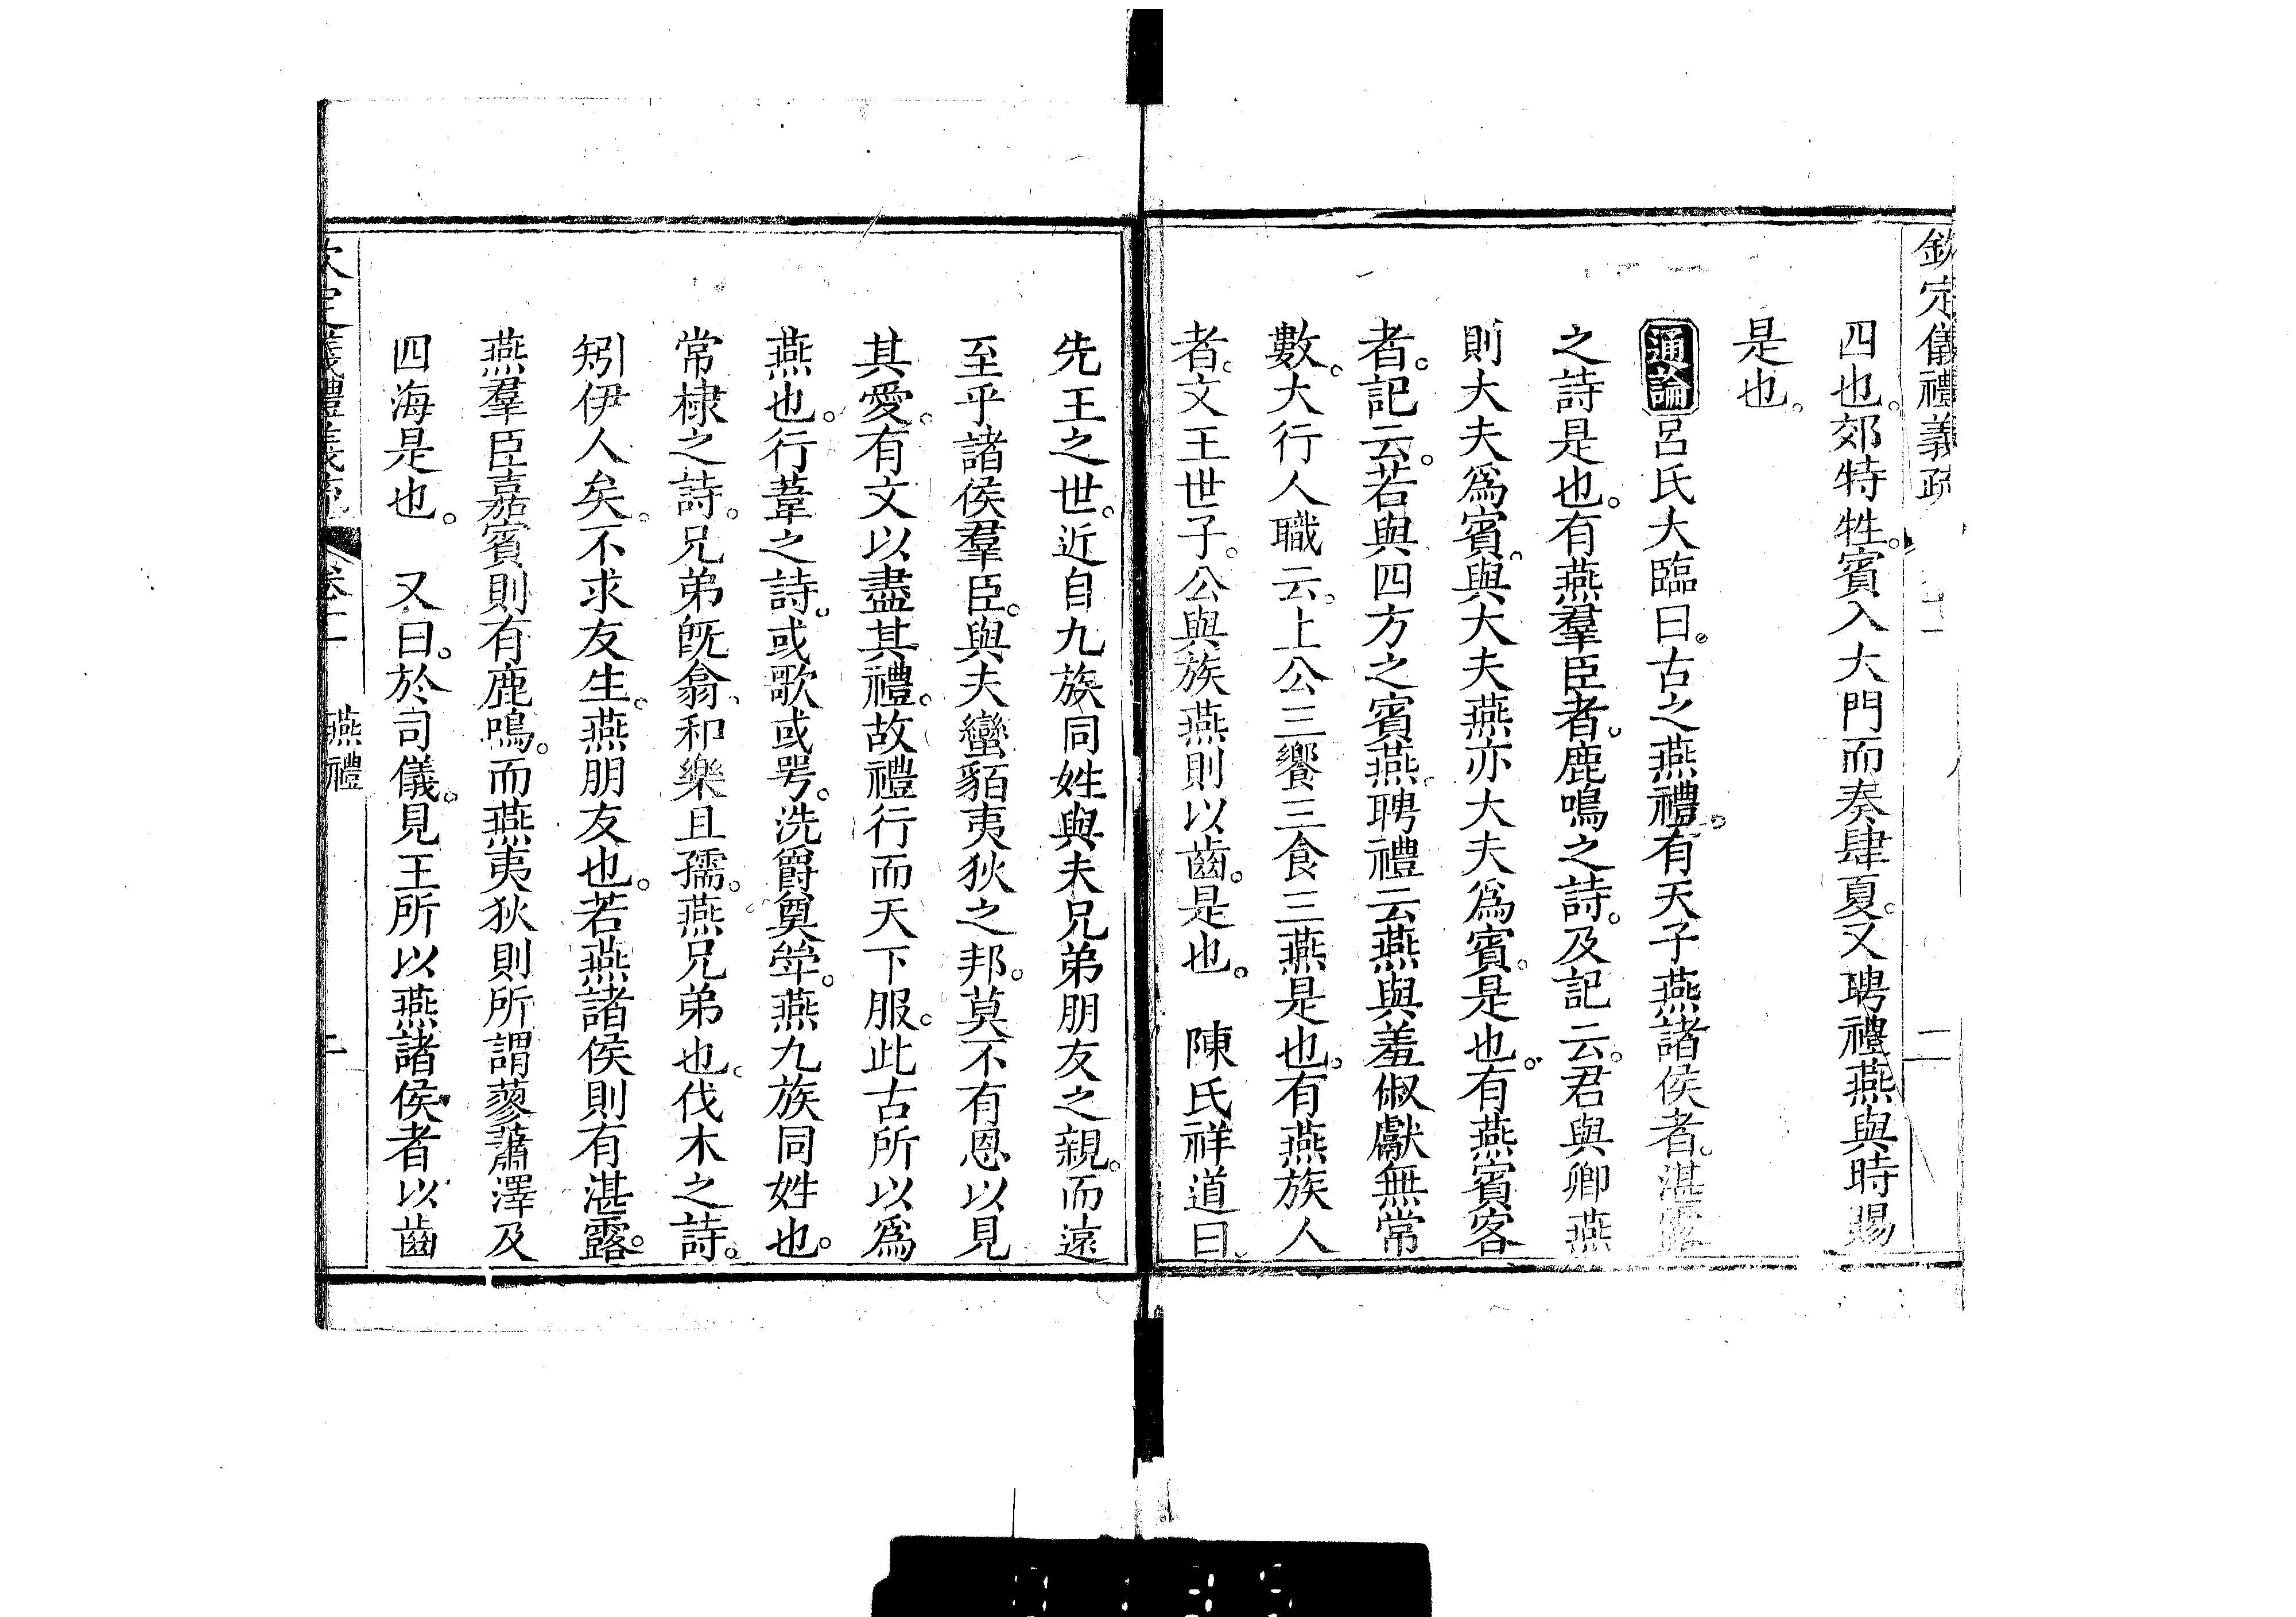 欽定儀禮義疏
四也。郊特牲。賓入大門而奏肆夏。又聘禮燕與時賜
是也。
通論呂氏大臨曰。古之燕禮。有天子燕諸侯者。湛露
之詩是也。有燕羣臣者。鹿鳴之詩。及記云。君與卿燕
則大夫爲賓。與大夫燕亦大夫爲賓。是也。有燕賓客
者。記云。若與四方之賓燕。聘禮云燕與羞俶獻無常
數。大行人職云。上公三饗三食三燕是也。有燕族人
者。文王世子。公與族燕則以齒。是也。 陳氏祥道曰。
先王之世。近自九族同姓與夫兄弟朋友之親。而遠
至乎諸侯羣臣。與夫蠻貊夷狄之邦。莫不有恩以見
其愛。有文以盡其禮。故禮行而天下服。此古所以爲
燕也。行葦之詩。或歌或咢。洗爵奠斝。燕九族同姓也。
常棣之詩。兄弟旣翕、和樂且孺。燕兄弟也。伐木之詩。
矧伊人矣。不求友生。燕朋友也。若燕諸侯則有湛露。
燕羣臣嘉賓則有鹿鳴。而燕夷狄則所謂蓼蕭澤及
四海是也。 又曰。於司儀。見王所以燕諸侯者以齒
燕禮